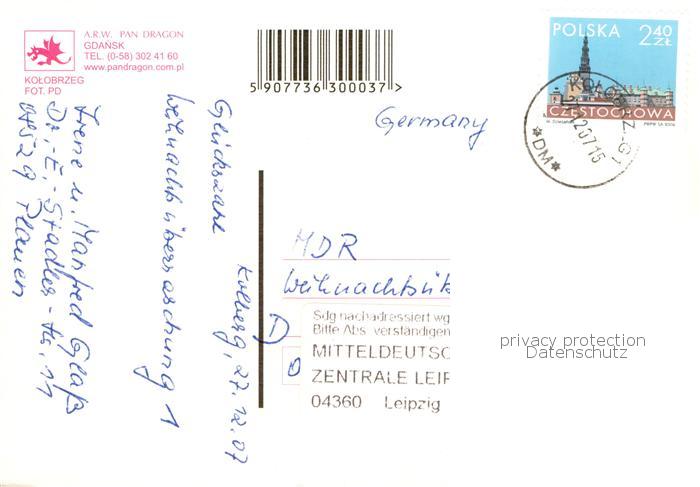 A.R.W. PAN DRAGON
GDAŃSK
TEL. (0-58) 302 41 60
www.pandragon.com.pl
KOŁOBRZEG
FOT. PD
5 907736 300037 >
POLSKA 2,40 ZŁ
CZĘSTOCHOWA
*DM*
Germany
Glückszahl
Weihnachtsüberraschung 1
Kolberg, 27.12.07
Irene u. Manfred Glaß
Dr.-E.-Stadler-Str. 11
08529 Plauen
MDR
Weihnachtsük
D
Sdg nachadressiert wg
Bitte Abs. verständigen
MITTELDEUTSC
ZENTRALE LEIF
04360 Leipzig
privacy protection
Datenschutz